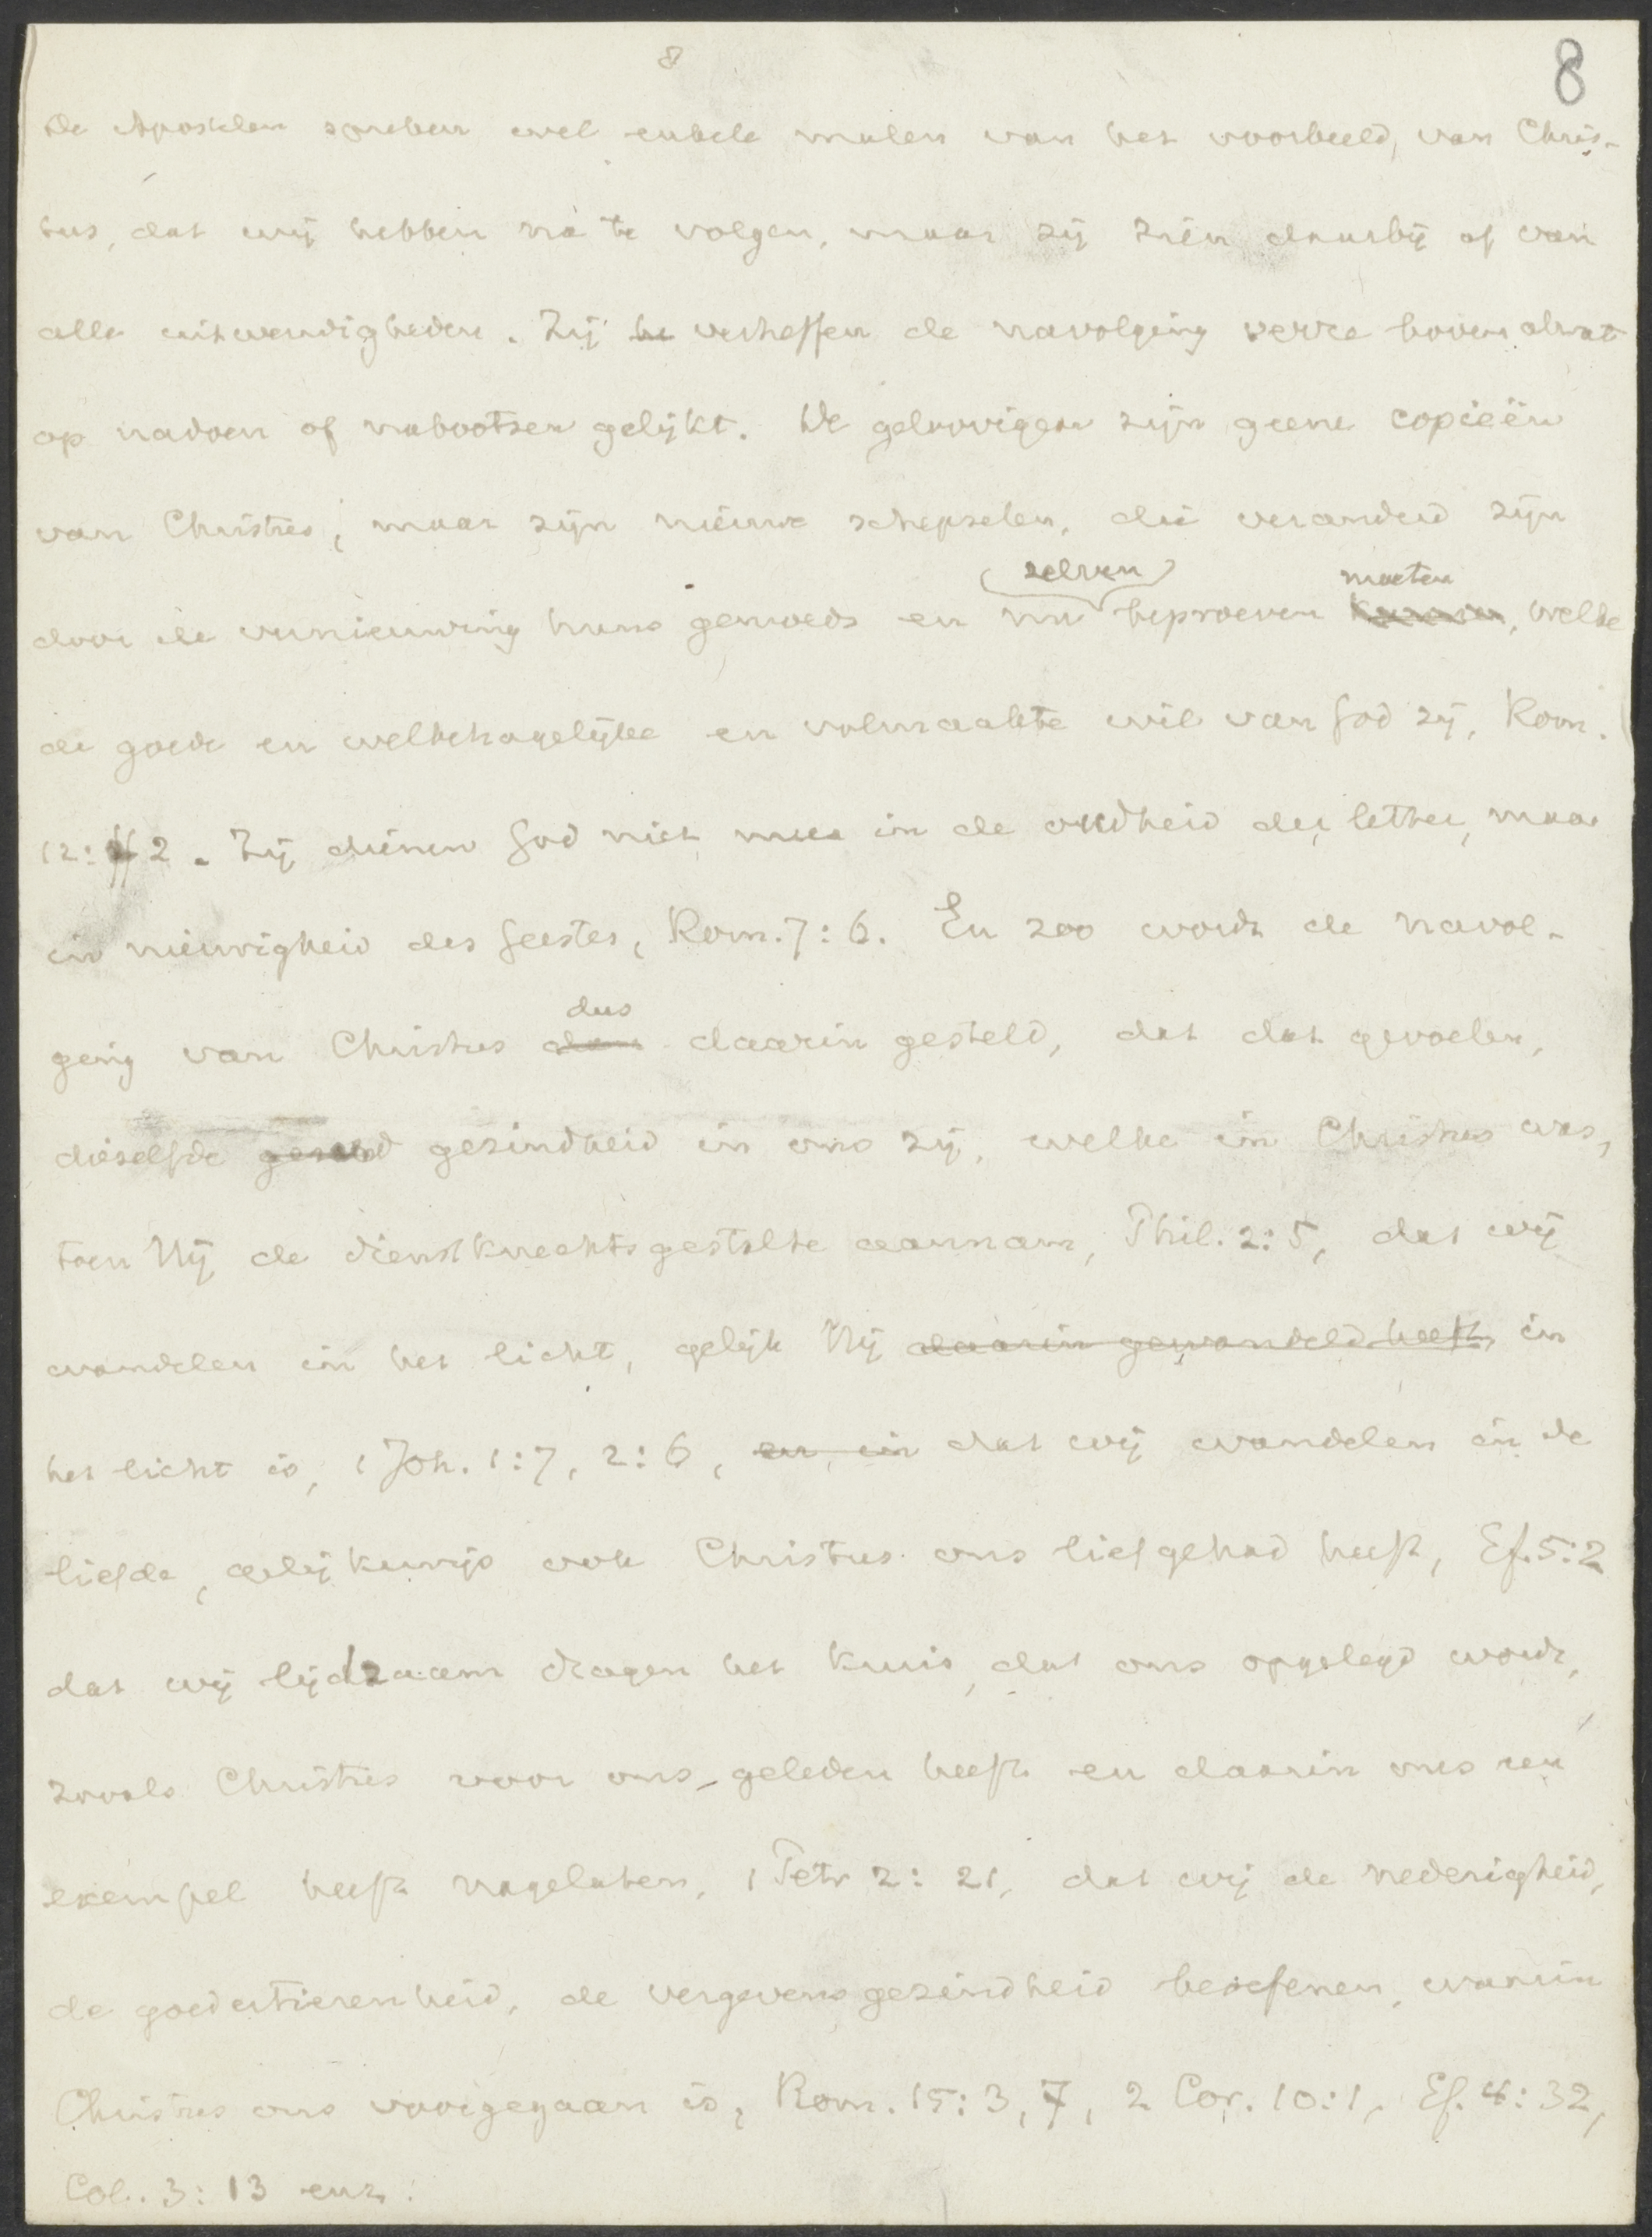 8
8
De Apostelen spreken wel enkele malen van het voorbeeld, van Chris-
tus, dat wij hebben na te volgen, maar zij zien daarbij af van
alle uitwendigheden. Zij be verheffen de navolging verre boven alwat
op nadoen of nabootsen gelijkt. De geloovigen zijn geene copieën
van Christus, maar zijn nieuwe schepselen, die veranderd zijn
zelven moeten
door de vernieuwing huns gemoeds en nu beproeven kunnen, welke
de goede en welbehagelijke en volmaakte wil van God zij, Rom.
12:2. Zij dienen God niet meer in de oudheid der letter, maar
in nieuwigheid des Geestes, Rom. 7:6. En zoo wordt de navol-
dus
ging van Christus dan daarin gesteld, dat dat gevoelen,
dieselfde gezindheid in ons zij, welke in Christus was,
toen Hij de dienstknechtsgestalte aannam, Phil. 2:5, dat wij
wandelen in het licht, gelijk Hij daarin gewandeld heeft, in
het licht is, 1 Joh. 1:7, 2:6, en in dat wij wandelen in de
liefde, gelijkerwijs ook Christus ons liefgehad heeft, Ef. 5:2
dat wij lijdzaam dragen het kruis, dat ons opgelegd wordt,
zooals Christus voor ons geleden heeft en daarin ons een
exempel heeft nagelaten, 1 Petr 2:21, dat wij de nederigheid,
de goedertierenheid, de vergevensgezindheid beoefenen, waarin
Christus ons voorgegaan is, Rom. 15:3, 7, 2 Cor. 10:1, Ef. 4:32,
Col. 3:13 enz.